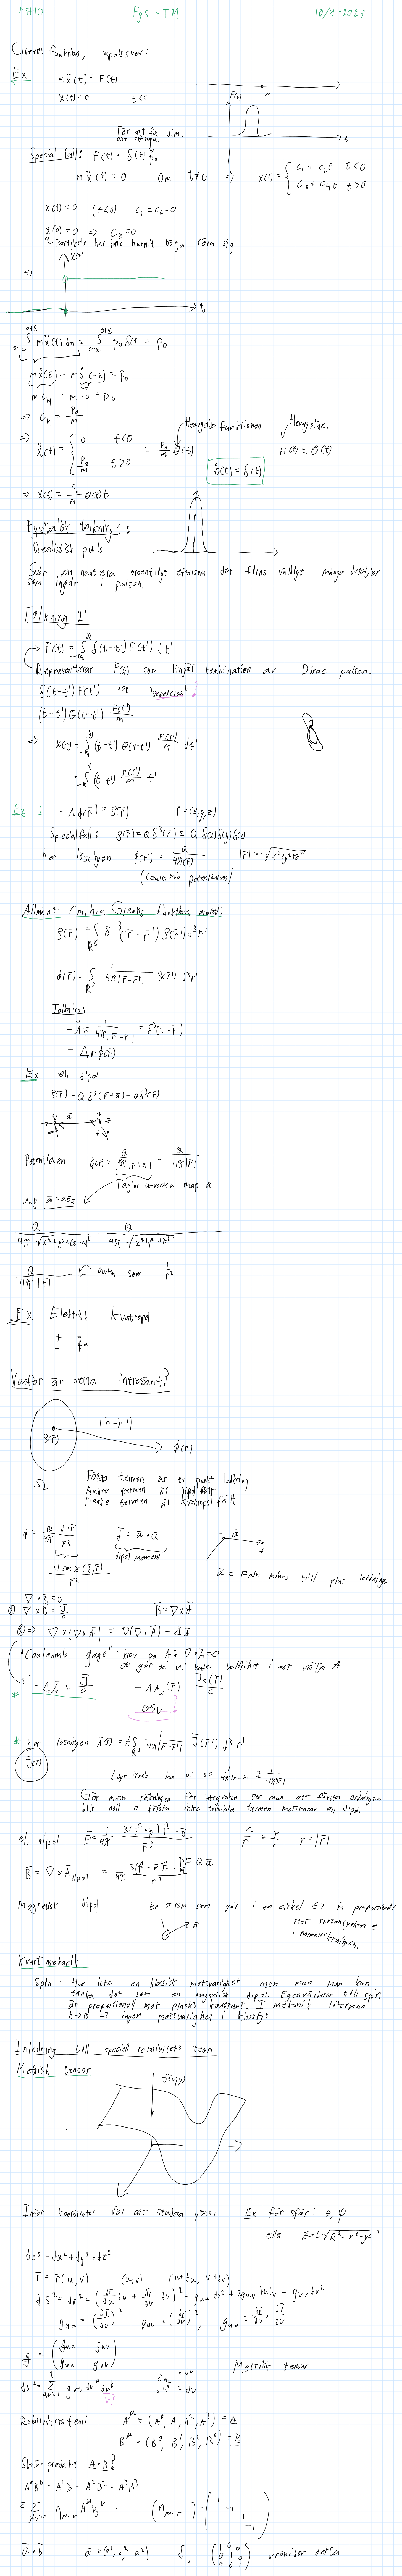 FÖ10 Fys-TM 10/4-2025
Greens funktion, impulssvar:
Ex mẍ(t) = F(t)
x(t)=0 t<<
m
F(t)
t
För att få dim. att stämma.
Special fall: F(t) = δ(t) p₀
mẍ(t) = 0 Om t≠0 ⇒ x(t) = { c₁ + c₂t t<0
c₃ + c₄t t>0
x(t)=0 (t<0) c₁=c₂=0
x(0)=0 ⇒ c₃=0
Partikeln har inte hunnit börja röra sig
ẋ(t)
⇒
t
∫ mẍ(t) dt = ∫ p₀ δ(t) = p₀
mẋ(ε) - mẋ(-ε) = p₀
mc₄ - m·0 = p₀
⇒ c₄ = p₀/m
Heavyside funktionen Heavyside.
⇒ ẋ(t) = { 0 t<0
p₀/m t>0 = p₀/m θ(t) H(t) ≡ θ(t)
θ̇(t) = δ(t)
⇒ x(t) = p₀/m θ(t)t
Fysikalisk tolkning 1:
Realistisk puls
Svår att hantera ordentligt eftersom det finns väldigt många detaljer
som ingår i pulsen.
Tolkning 2:
F(t) = ∫ δ(t-t') F(t') dt'
Representerar F(t) som linjär kombination av Dirac pulser.
δ(t-t') F(t') kan "separeras"?
(t-t') θ(t-t') F(t')/m
⇒ x(t) = ∫ (t-t') θ(t-t') F(t')/m dt'
= ∫ (t-t') F(t')/m t'
Ex 2 -Δφ(r̄) = ρ(r̄) r̄ = (x,y,z)
Specialfall: ρ(r̄) = Q δ³(r̄) = Q δ(x)δ(y)δ(z)
har lösningen φ(r̄) = Q/4π|r̄| |r̄| = √x²+y²+z²
(Coulomb potentialen)
Allmänt (m.h.a Greens funktions metod)
ρ(r̄) = ∫ δ³(r̄-r̄') ρ(r̄') d³r'
φ(r̄) = ∫ 1/4π|r̄-r̄'| ρ(r̄') d³r'
Tolkning:
-Δr̄ 1/4π|r̄-r̄'| = δ³(r̄-r̄')
-Δr̄ φ(r̄)
Ex el. dipol
ρ(r̄) = Q δ³(r̄+ā) - Qδ³(r̄)
Potentialen φ(r) = Q/4π|r̄+ā| - Q/4π|r̄|
Taylor utveckla map a
välj ā = aez
Q/4π√x²+y²+(z-a)² - Q/4π√x²+y²+z²
Q/4π|r̄| avtar som 1/r²
Ex Elektrisk kvadrupol
+ -
- + a
Varför är detta intressant?
ρ(r̄) |r̄-r̄'| φ(r)
Ω
Första termen är en punkt laddning
Andra termen är dipol fält
Tredje termen är kvadrupol fält
d̄ = ā·Q
dipol moment
- ā +
ā = Från minus till plus laddning
∇·B̄=0
② ∇×B̄ = J̄/c B̄=∇×Ā
② ⇒ ∇×(∇×Ā) = ∇(∇·Ā) - ΔĀ
"Coulomb gage" - krav på A: ∇·A=0
-ΔĀ = J̄/c
osv.?
* har lösningen Ā(r̄) = 1/c ∫ 1/4π|r̄-r̄'| J̄(r̄') d³r'
J̄(r̄)
Långt ifrån kan vi se 1/4π|r̄-r̄'| ≈ 1/4π|r̄|
Gör man räkningen för integralen ser man att första ordningen
blir noll & första icke triviala termen motsvarar en dipol.
el. dipol Ē = 1/4π 3(r̂·p̄)r̂-p̄/r³ r̂ = r̄/r r=|r̄|
B̄ = ∇×Ādipol = 1/4π 3(r̂·m̄)r̂-m̄/r³ p̄ = Qā
Magnetisk dipol En ström som går i en cirkel ⇔ m̄ proportionell
mot strömstyrkan
i normalriktningen.
n̄
Kvantmekanik
Spin - Har inte en klassisk motsvarighet men man man kan
tänka det som en magnetisk dipol. Egenvärdena till spin
är proportionell mot planks konstant. I mekanik låter man
h→0 ⇒ ingen motsvarighet i klassfys.
Inledning till speciell relativitets teori
Metrisk tensor
f(x,y)
Inför koordinater för att studera ytan. Ex för sfär: θ, φ
eller z=±√R²-x²-y²
ds² = dx²+dy²+dz²
r̄ = r̄(u,v) (u,v) (u+du, v+dv)
ds² = dr̄² = (∂r̄/∂u du + ∂r̄/∂v dv)² = guu du² + 2guv dudv + gvv dv²
guu = (∂r̄/∂u)² gvv = (∂r̄/∂v)², guv = ∂r̄/∂u · ∂r̄/∂v
g = (guu guv
guv gvv) Metrisk tensor
ds² = Σ gab duᵃ duᵇ
v?
Relativitets teori Aᵘ = (A⁰, A¹, A², A³) = A
Bᵘ = (B⁰, B¹, B², B³) = B
Skalär produkt A·B?
A⁰B⁰ - A¹B¹ - A²B² - A³B³
= Σ ημν AᵘBᵛ (ημν) = (1 -1 -1 -1)
ā·b̄ δij (1 0 0
0 1 0
0 0 1) kronicker delta